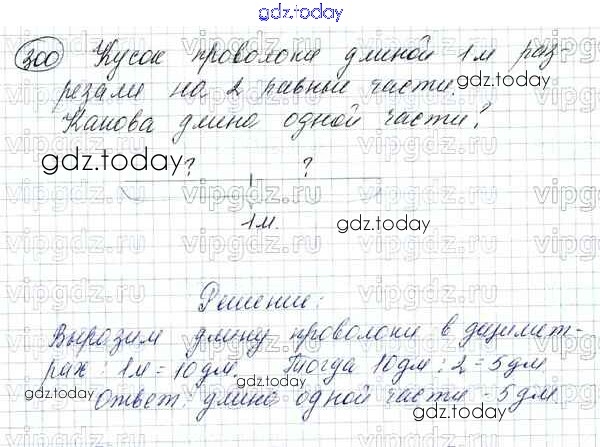 gdz.today
300 Кусок проволоки длиной 1 м раз-
резали на 2 равные части.
gdz.today
Какова длина одной части?
gdz.today
? ?
1 м.
gdz.today
Решение:
Выразим длину проволоки в децимет-
рах: 1 м = 10 дм. Тогда 10 дм : 2 = 5 дм
gdz.today
Ответ: длина одной части - 5 дм
gdz.today